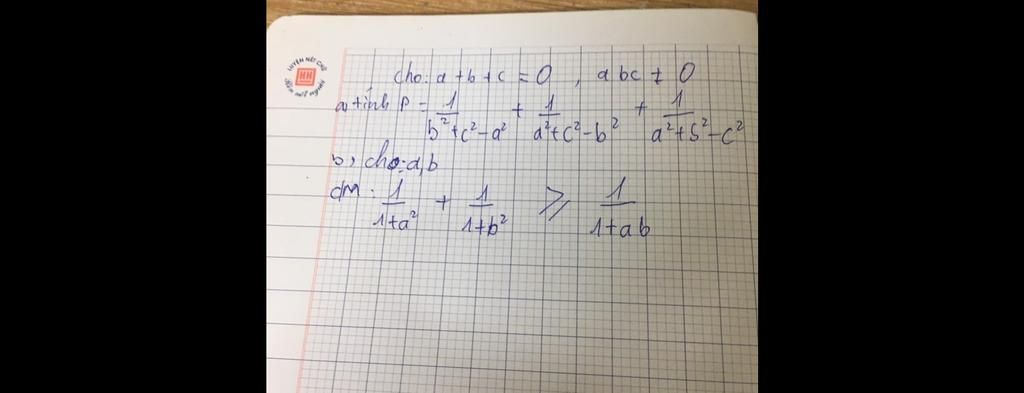 LUYỆN NÉT CHỮ
HH
Rèn nết người
cho: a + b + c = 0 , abc ≠ 0
a, tính P = 1/(b²+c²-a²) + 1/(a²+c²-b²) + 1/(a²+b²-c²)
b, cho: a,b
CM: 1/(1+a²) + 1/(1+b²) ⩾ 1/(1+ab)